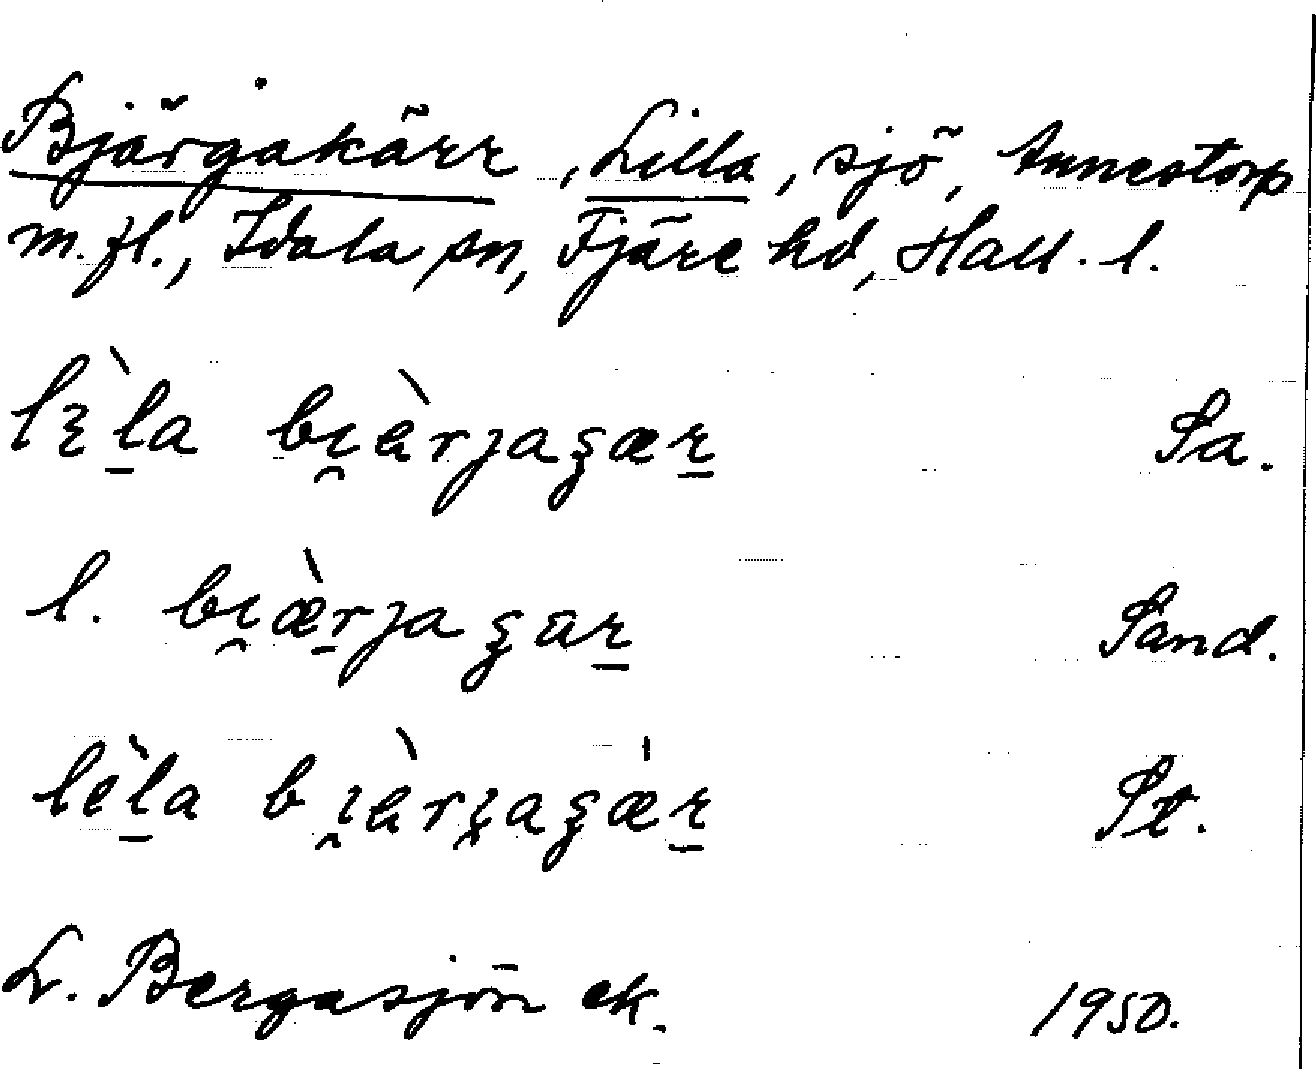 Bjärgakärr, Lilla, sjö, Annestorp
m.fl., Idala sn, Fjäre hd, Hall. l.
lɛ̀l̠a bi̯èrjaʒær̠ Sa.
l. bi̯æ̀r̠jaʒar̠ Sand.
lèl̠a bi̯èri̯aʒæ̍r̠ St.
L. Bergasjön ek. 1950.